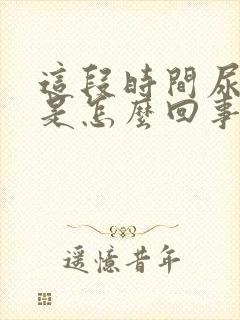 這段時間尿
是怎麼回事
遥憶昔年